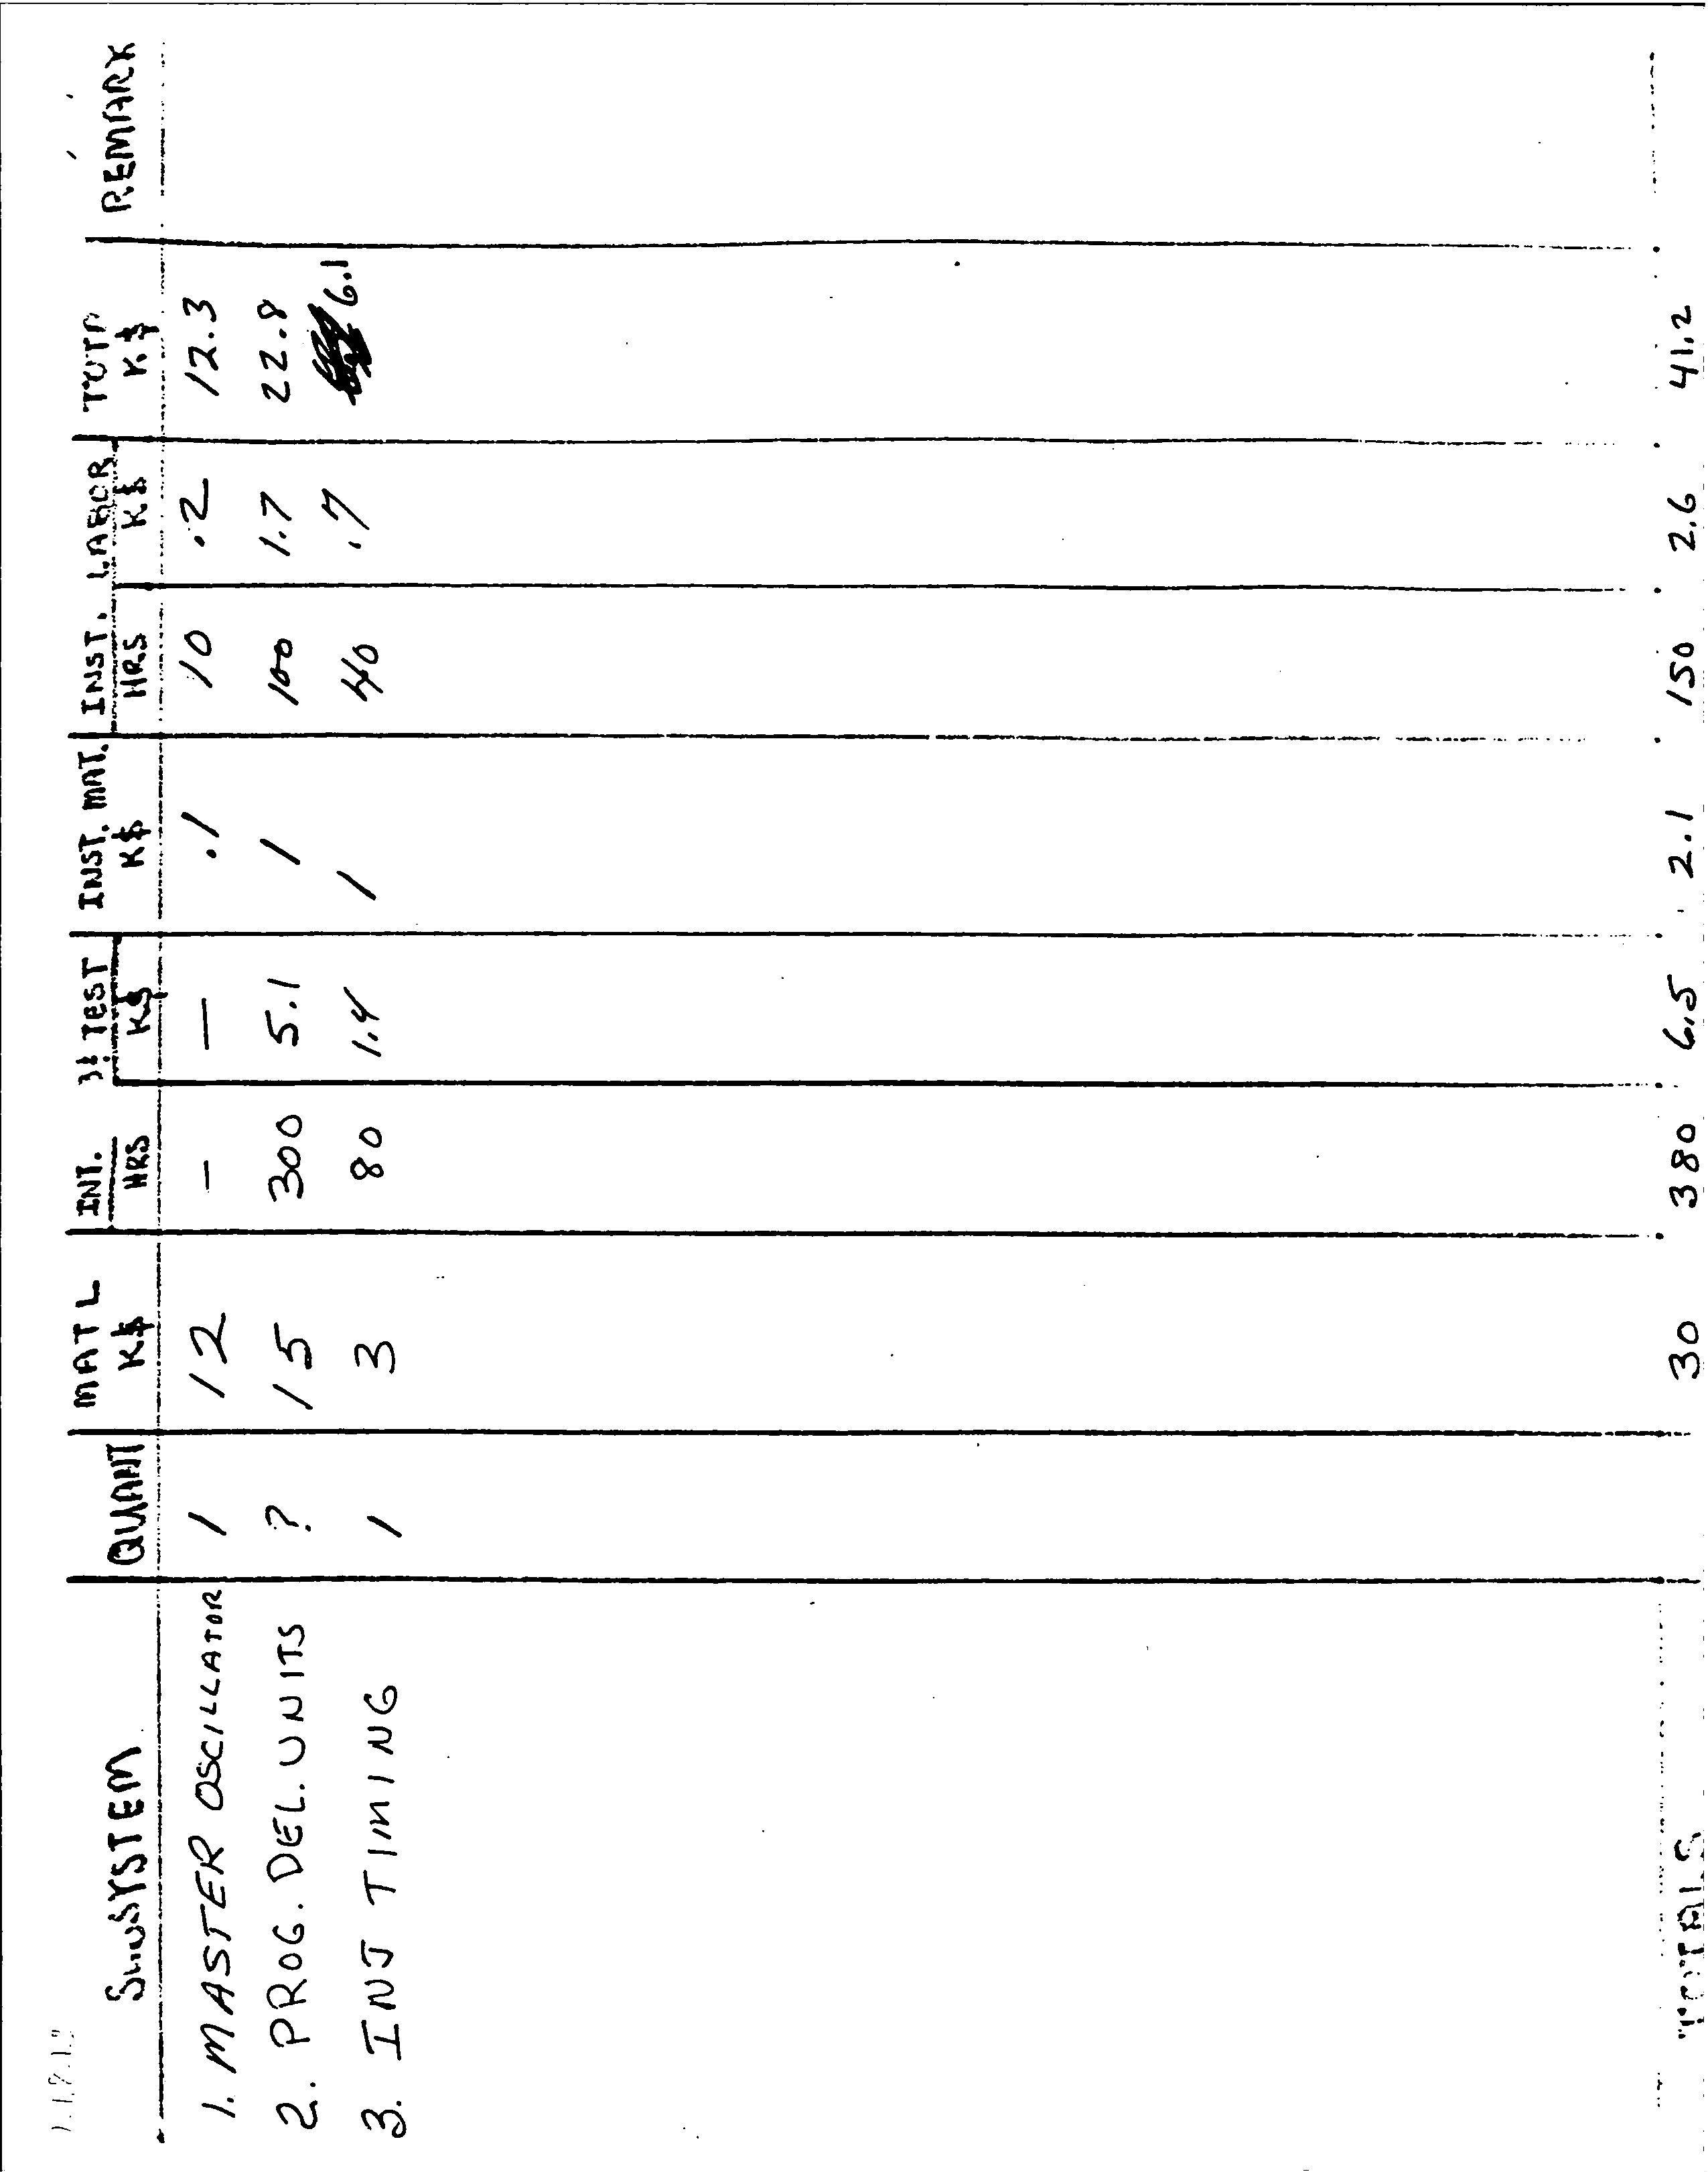 SUBSYSTEM QUANT MATL K$ INT. & TEST HRS K$ INST. MAT. K$ INST. LABOR HRS K$ TOTA K$ REMARK
1. MASTER OSCILLATOR 1 12 — — .1 10 .2 12.3
2. PROG. DEL. UNITS ? 15 300 5.1 1 100 1.7 22.8
3. INJ TIMING 1 3 80 1.4 1 40 .7 6.1
TOTALS 30 380 6.5 2.1 150 2.6 41.2